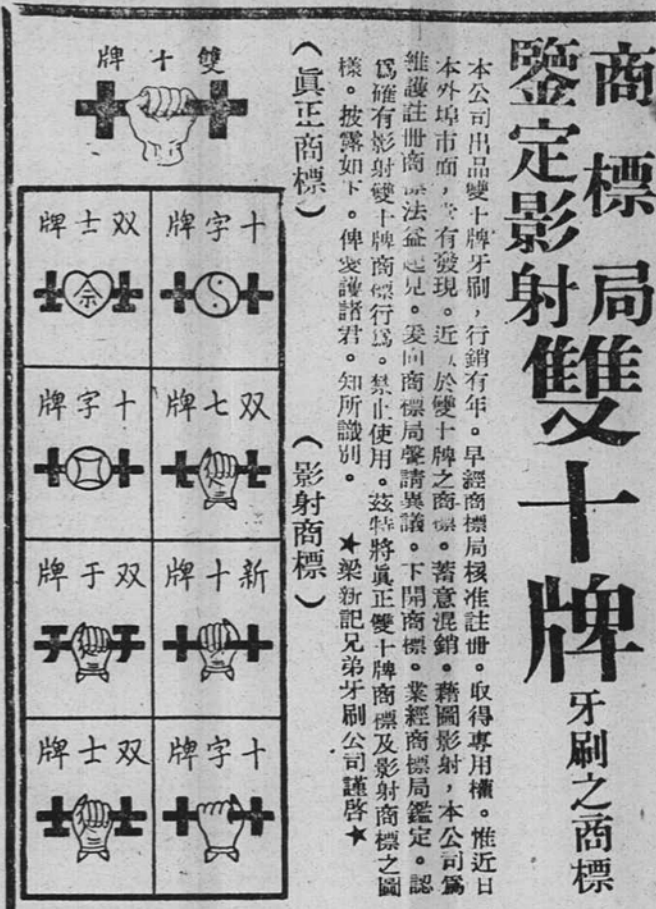 商標局
鑒定影射
雙十牌
牙刷之商標
本公司出品雙十牌牙刷，行銷有年。早經商標局核准註冊。取得專用權。惟近日
本外埠市面，有發現。近於雙十牌之商標。蓄意混銷。藉圖影射，本公司爲
維護註冊商標法益起見。爰向商標局聲請異議。下開商標。業經商標局鑑定。認
爲確有影射雙十牌商標行爲。禁止使用。茲特將眞正雙十牌商標及影射商標之圖
樣。披露如下。俾愛護諸君。知所識別。 ★梁新記兄弟牙刷公司謹啓★
（眞正商標）
（影射商標）
雙十牌
十字牌
双士牌
佘
双七牌
十字牌
新十牌
双于牌
十字牌
双士牌